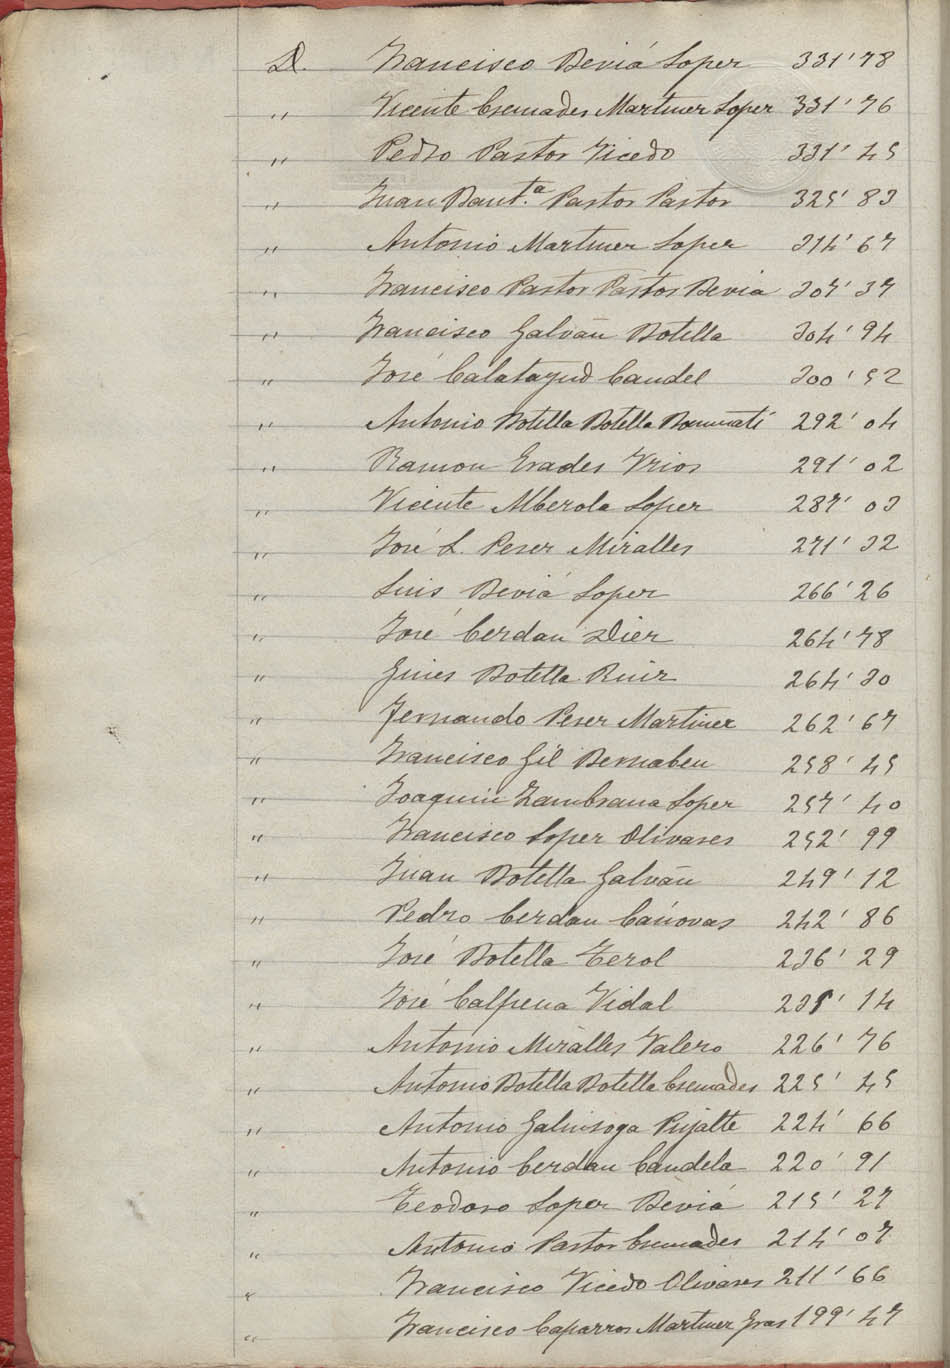 D. Francisco Beviá Soper 331'78
" Vicente Cremades Martiner Soper 331'76
" Pedro Pastor Vicedo 331'45
" Juan Baut.ª Pastor Pastor 325'83
" Antonio Martiner Soper 314'67
" Francisco Pastor Pastor Bevia 307'37
" Francisco Galván Botella 304'94
" José Calatayud Caudel 300'52
" Antonio Botella Botella Bonmati 292'04
" Ramon Erades Vrios 291'02
" Vicente Alberola Soper 287'03
" José L. Peser Miralles 271'32
" Luis Beviá Soper 266'26
" José Cerdán Dier 264'78
" Gines Botella Ruir 264'30
" Fernando Peser Martiner 262'67
" Francisco Gil Bernabeu 258'45
" Joaquin Zambrana Soper 257'40
" Francisco Soper Olivares 252'99
" Juan Botella Galván 249'12
" Pedro Cerdan Cánovas 242'86
" José Botella Terol 236'29
" José Calpena Vidal 235'14
" Antonio Miralles Valero 226'76
" Antonio Botella Botella Cremades 225'45
" Antonio Galinsoga Pujalte 224'66
" Antonio Cerdan Candela 220'91
" Teodoro Soper Beviá 215'27
" Antonio Pastor Cremades 214'07
" Francisco Vicedo Olivares 211'66
" Francisco Caparros Martiner Gras 199'47